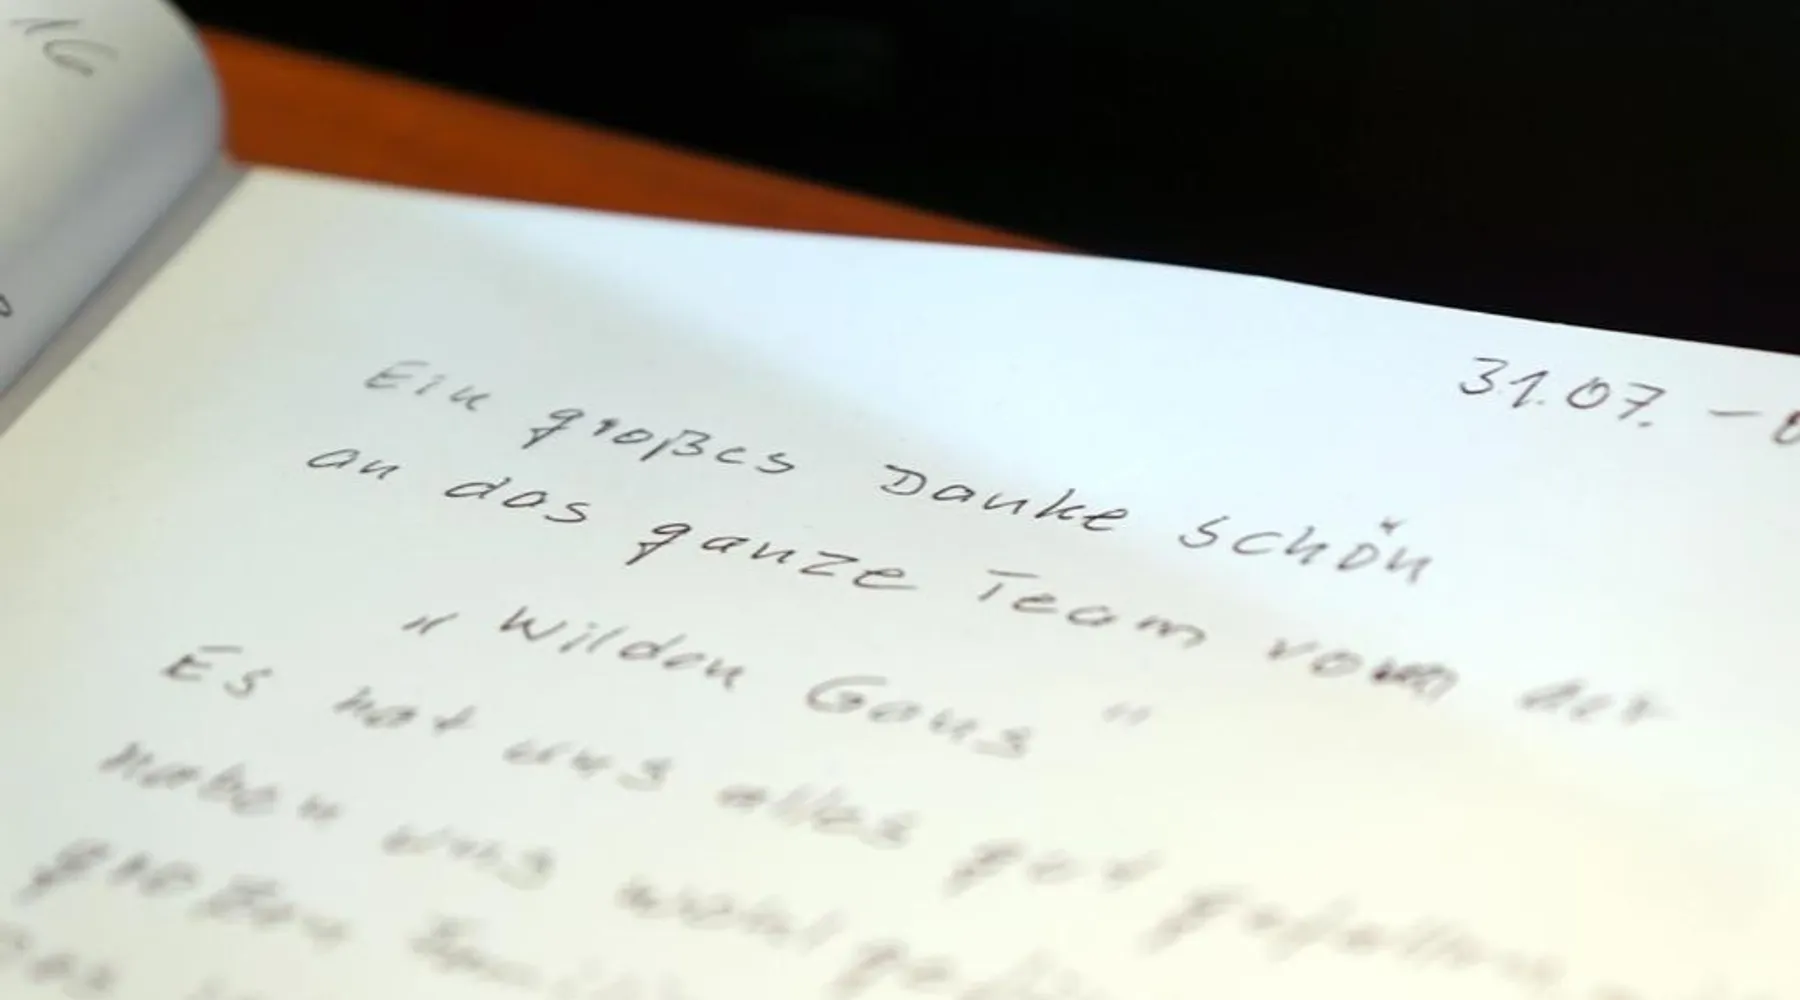 16
31.07. –
Ein großes Danke schön
an das ganze Team vom der
„Wilden Gans"
Es hat uns alles gut gefallen
haben uns wohl
großen